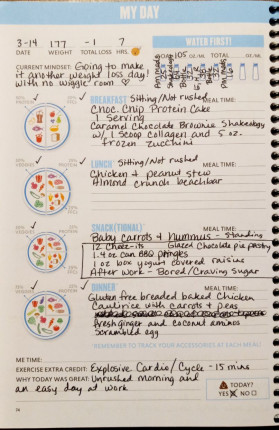 MY DAY
3-14 177 -1 7
DATE WEIGHT TOTAL LOSS HRS.
WATER FIRST!
GOAL 105 OZ/ML TOTAL OZ/ML
CURRENT MINDSET: Going to make
it another weight loss day!
with no wiggle room ♡
BREAKFAST Sitting/Not rushed MEAL TIME:
Choc. Chip Protein Cake
1 Serving
Caramel Chocolate Brownie Shakeology
w/ 1 scoop collagen and 5 oz.
frozen zucchini
LUNCH Sitting/Not rushed MEAL TIME:
Chicken + peanut stew
Almond crunch beachbar
SNACK (THINAL) MEAL TIME:
Baby carrots + hummus - Standing
12 Cheez-its Glazed Chocolate pie pastry
1.4 oz can BBQ pringles
1 oz box yogurt covered raisins
After work - Bored/Craving Sugar
DINNER MEAL TIME:
Gluten free breaded baked Chicken
Caulirice with carrots + peas
fresh ginger and coconut aminos
scrambled egg
REMEMBER TO TRACK YOUR ACCESSORIES AT EACH MEAL!
ME TIME:
EXERCISE EXTRA CREDIT: Explosive Cardio/Cycle - 15 mins
WHY TODAY WAS GREAT: Unrushed morning and
an easy day at work
TODAY?
YES NO